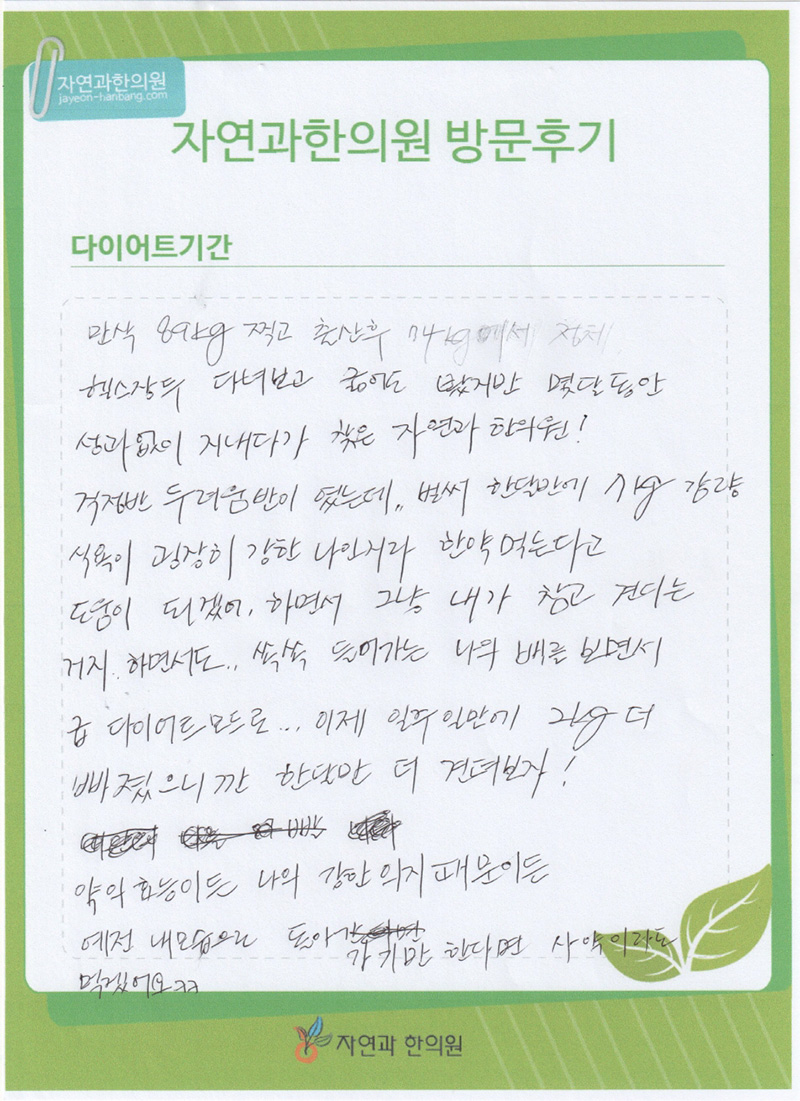 자연과한의원
jayeon-hanbang.com
자연과한의원 방문후기
다이어트기간
만삭 89kg 찍고 출산후 74kg에서 정체
헬스장두 다녀보고 굶어도 봤지만 몇달동안
성과없이 지내다가 찾은 자연과 한의원!
걱정반 두려움반이 였는데,, 벌써 한달만에 7kg 감량
식욕이 굉장히 강한 나인지라 한약먹는다고
도움이 되겠어, 하면서 그냥 내가 참고 견디는
거지.. 하면서도.. 쏙쏙 들어가는 나의 배를 보면서
급 다이어트모드로... 이제 일주일만에 2kg 더
빠졌으니깐 한달만 더 견뎌보자!
약의 효능이든 나의 강한의지 때문이든
예전 내모습으로 돌아가
가기만 한다면 사약이라도
먹겠어요ㅋㅋ
자연과 한의원